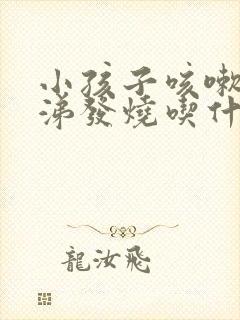 小孩子咳嗽
涕發燒喫什
龍汝飛